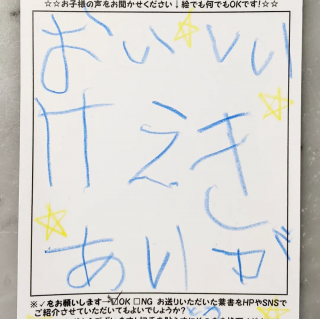 ☆☆お子様の声をお聞かせください↓絵でも何でもOKです!☆☆
おいしい
けえき
ありが
※✓をお願いします→☐OK ☐NG お送りいただいた葉書をHPやSNSで
ご紹介させていただいてもよいでしょうか?